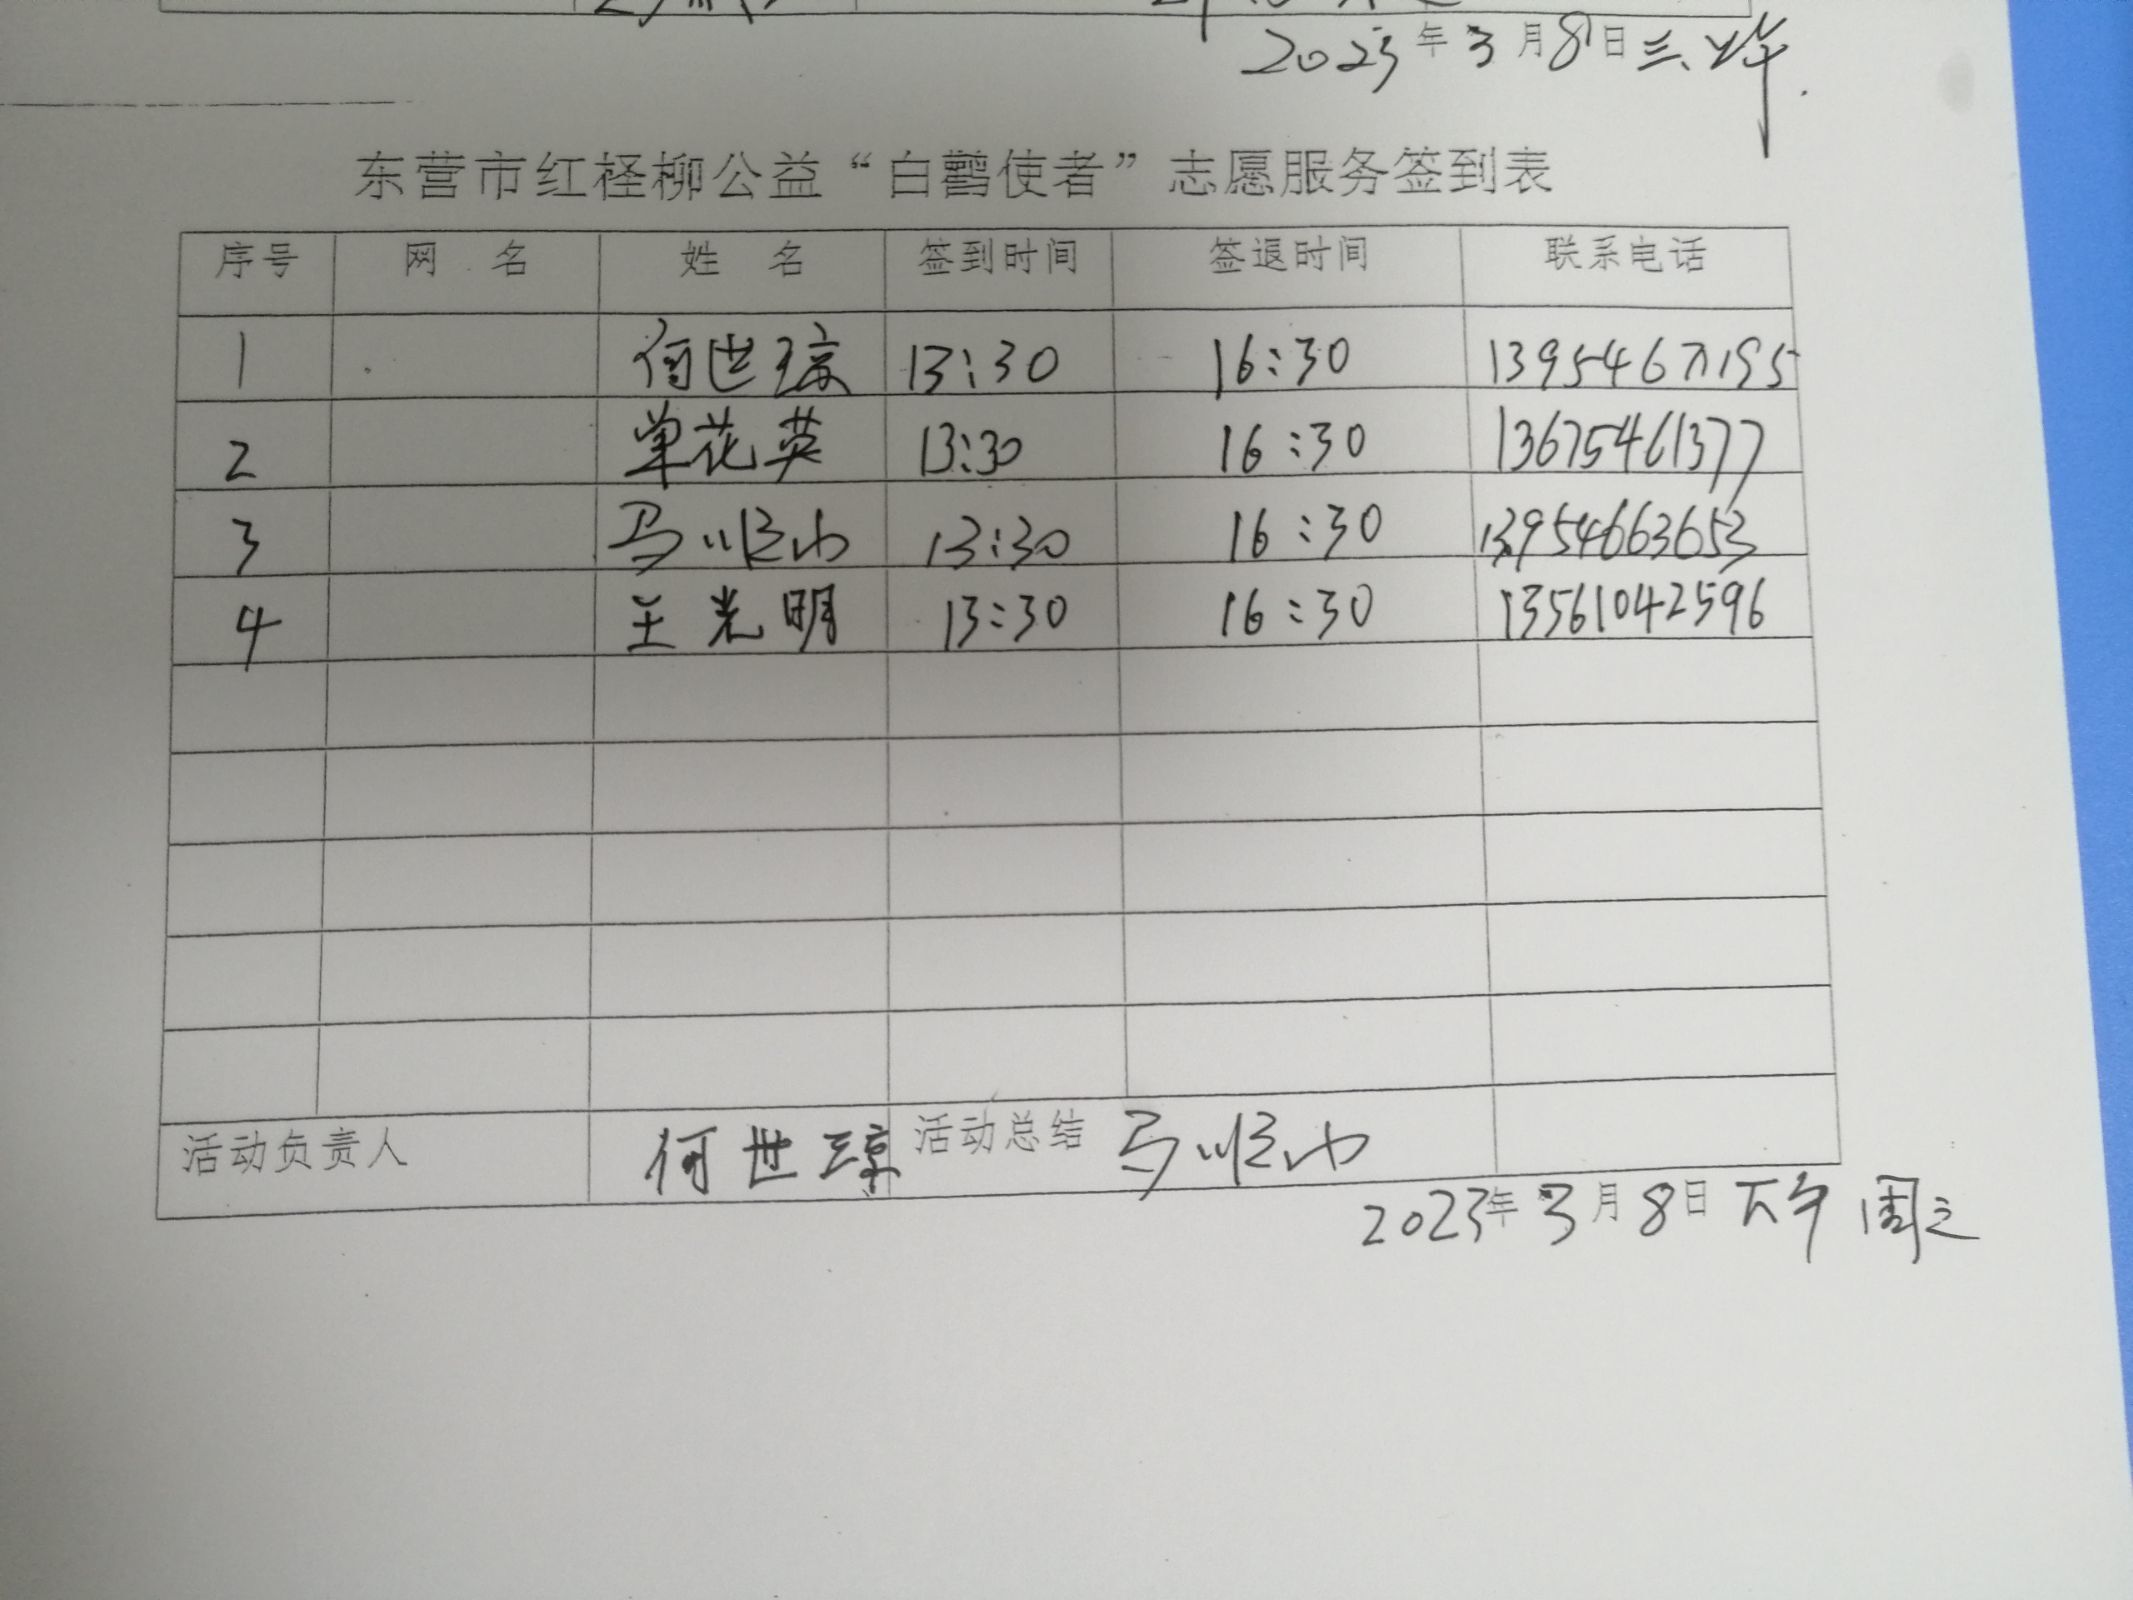 2023年3月8日 三、上午.
东营市红柽柳公益“白鹳使者”志愿服务签到表
序号 网 名 姓 名 签到时间 签退时间 联系电话
1 何世琼 13:30 16:30 13954671955
2 单花英 13:30 16:30 13675461377
3 马顺山 13:30 16:30 13954663653
4 王光明 13:30 16:30 13561042596
活动负责人 何世琼 活动总结 马顺山
2023年3月8日 下午 周三